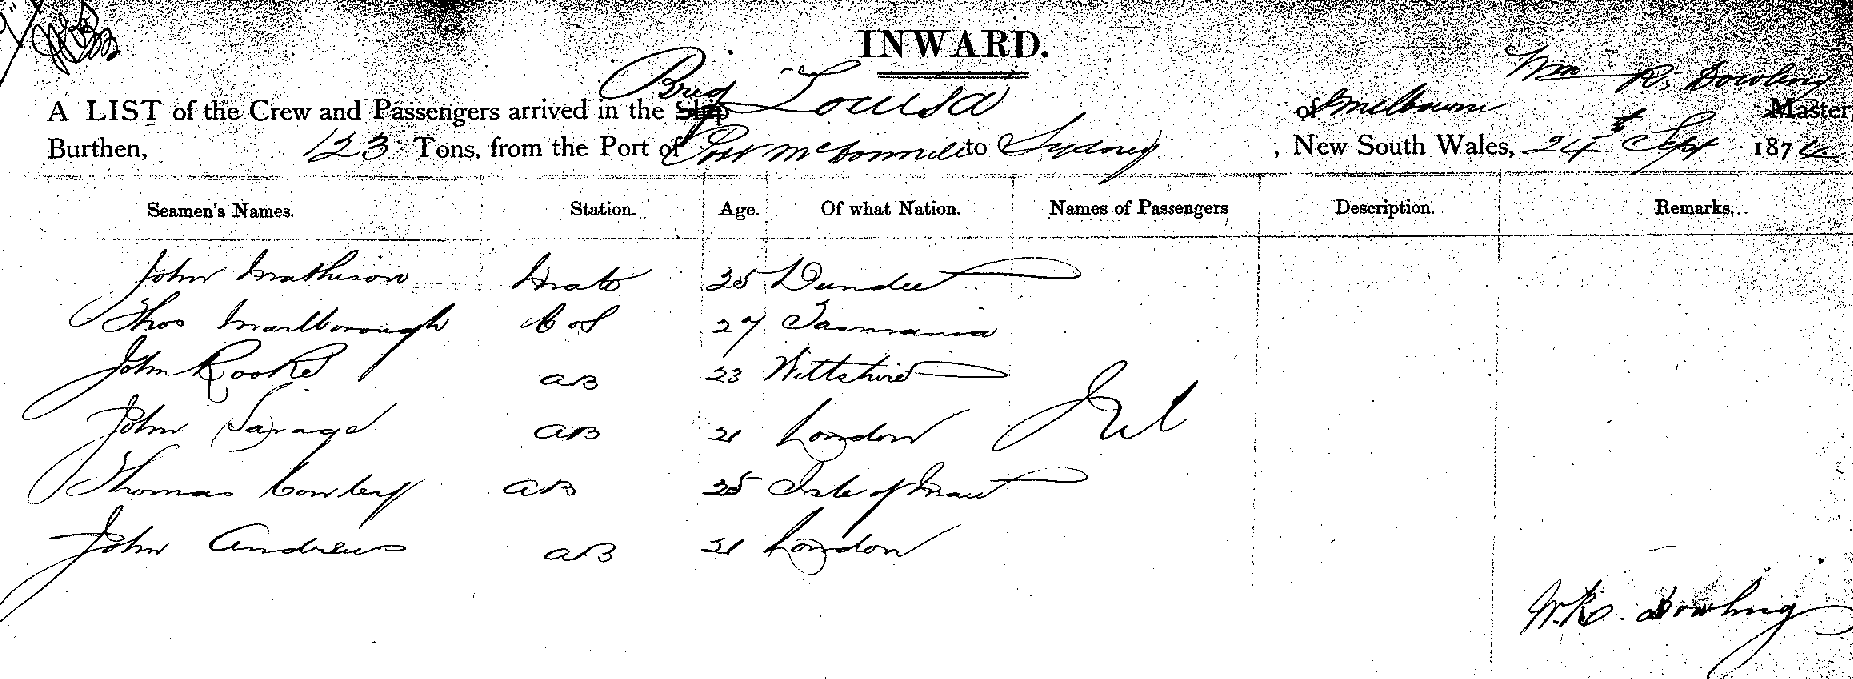 INWARD.
Wm R. Dowling
A LIST of the Crew and Passengers arrived in the Ship Brig Louisa of Melbourne Master
Burthen, 123 Tons, from the Port of Port McDonnell to Sydney, New South Wales, 24th Sept 187
Seamen's Names. Station. Age. Of what Nation. Names of Passengers Description. Remarks.
John Mathison Mate 25 Dundee
Thos Marlborough C & S 27 Tasmania
John Rooke AB 23 Wiltshire
John Savage AB 21 London Nil
Thomas Cowley AB 25 Isle of Man
John Andrews AB 21 London
W.R. Dowling